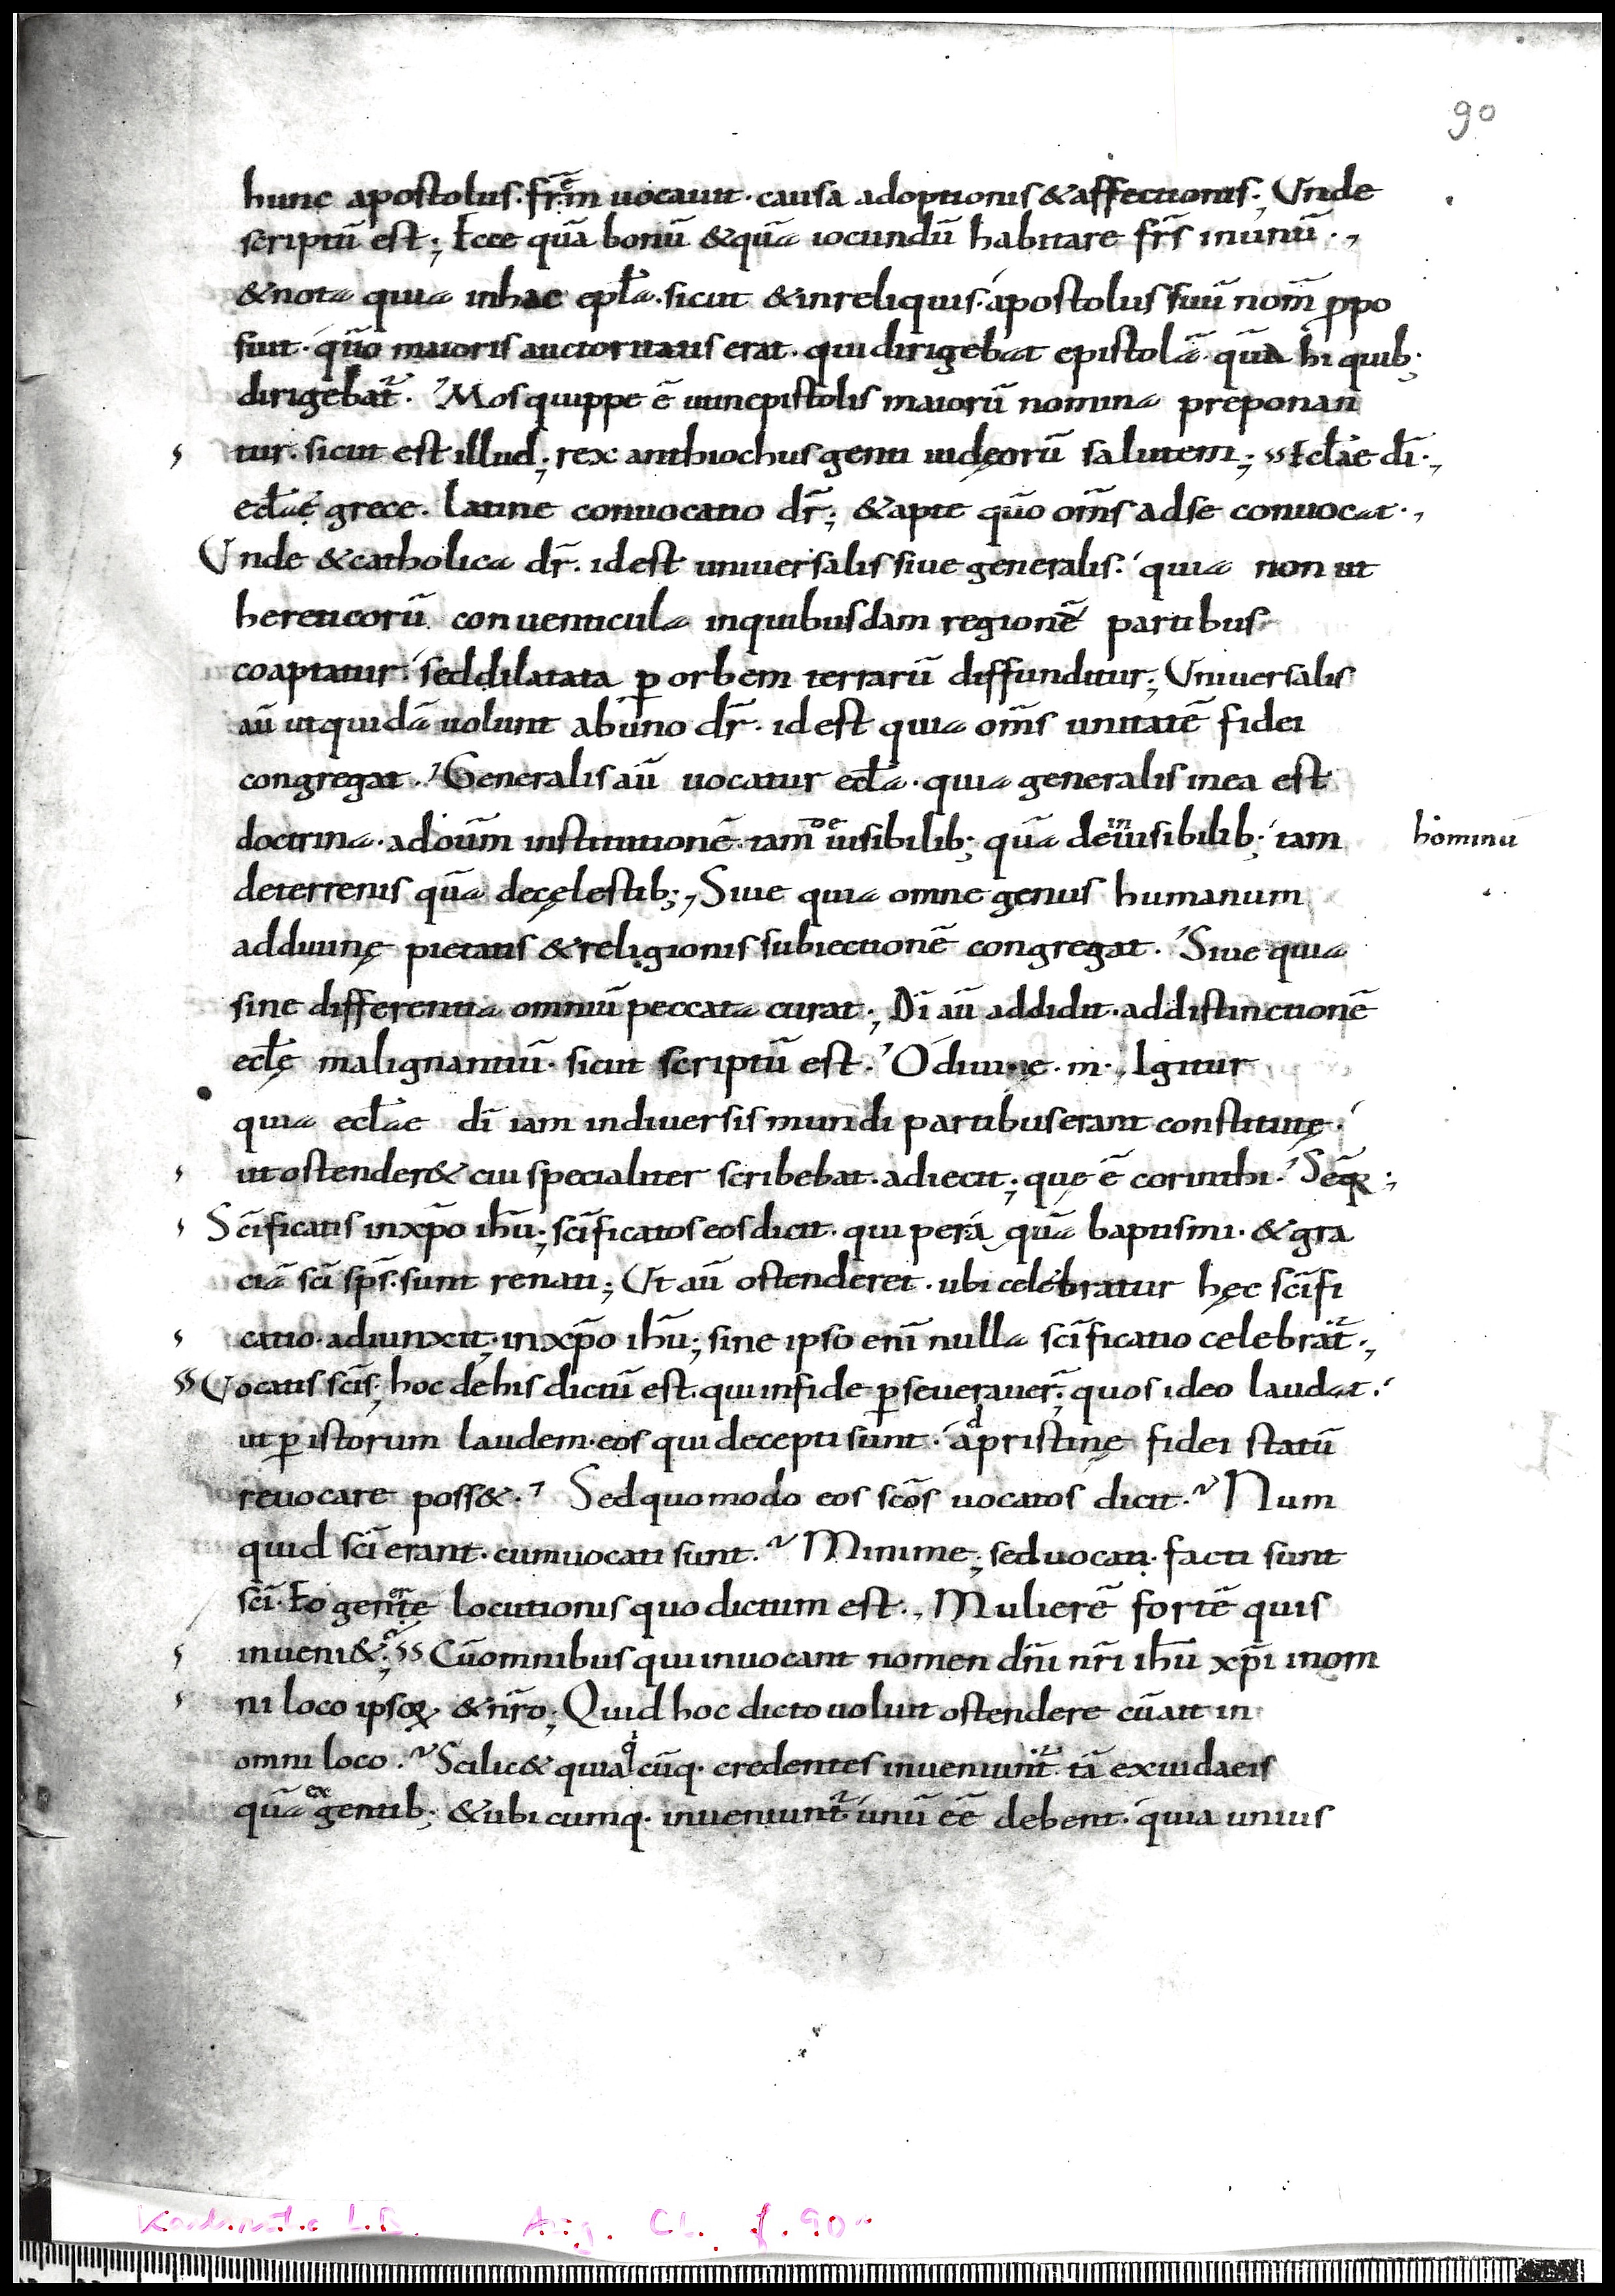 90
hunc apostolus. fr̄em uocauit. causa adoptionis & affectionis; Unde
scriptū est; Ecce quā bonū & quā iocundū habitare fr̄s inunū.,
& nota quia inhac epl̄a. sicut & inreliquis. apostolus suū nom̄ p̄po
suit. qūo maioris auctoritatis erat. qui dirigebat epistolā. quā hi quib;
dirigebat̄. Mos quippe ē utinepistolis maiorū nomina preponan
tur. sicut est illud; rex anthiochus genti iudęorū salutem; Ecl̄ae dī.,
ecl̄ae grece. latine conuocatio dr̄; & apte qūo om̄s adse conuocat.,
Unde & catholica dr̄. id est uniuersalis siue generalis. quia non ut
hereticorū conuenticula inquibusdam regionē partibus
coaptatur. sed dilatata ꝑ orbem terrarū diffunditur; Uniuersalis
aū ut quidā uolunt ab uno dr̄. id est quia om̄s unitatē fidei
congregat. Generalis aū uocatur ecl̄a. quia generalis inea est
doctrina. ad oūm institutionē. tam de uisibilib; quā de inuisibilib; tam hominū
deterrenis quā decęlestib;, Siue quia omne genus humanum
ad diuinę pietatis & religionis subiectionē congregat. Siue quia
sine differentia omniū peccata curat; Dī aū addidit. ad distinctionē
ecl̄ę malignantiū. sicut scriptū est. Odiui ę. m., Igitur
quia ecl̄ae dī iam indiuersis mundi partibus erant constitutę.
ut ostender& cui specialiter scribebat. adiecit; quę ē corinthi. Seq̄ꝛ;
Sc̄ificatis inxp̄o ihū; sc̄ificatos eos dicit. qui per aquā baptismi. & gra
ciā sc̄i sp̄s. sunt renati; Ut aū ostenderet. ubi celebratur hęc sc̄ifi
catio. adiunxit; inxp̄o ihū; sine ipso enī nulla sc̄ificatio celebrat̄.,
Uocatis sc̄is; hoc de his dictū est. qui infide ꝑseuerauer̄; quos ideo laudat.
ut ꝑ istorum laudem. eos qui decepti sunt. ad pristinę fidei statū
reuocare poss&. Sed quomodo eos sc̄os uocatos dicit. Num
quid sc̄i erant. cum uocati sunt. Minime; sed uocati. facti sunt
sc̄i. Eo genere locutionis quo dictum est., Mulierē fortē quis
inueni&; Cū omnibus qui inuocant nomen dn̄i nr̄i ihū xp̄i inom
ni loco ipsoꝝ & nr̄o; Quid hoc dicto uoluit ostendere cū ait in
omni loco. Scilic& quia q̊cūq. credentes inueniunt̄. tā exiudaeis
quā ex gentib; & ubicumq. inueniunt̄ unū eē debent. quia unius